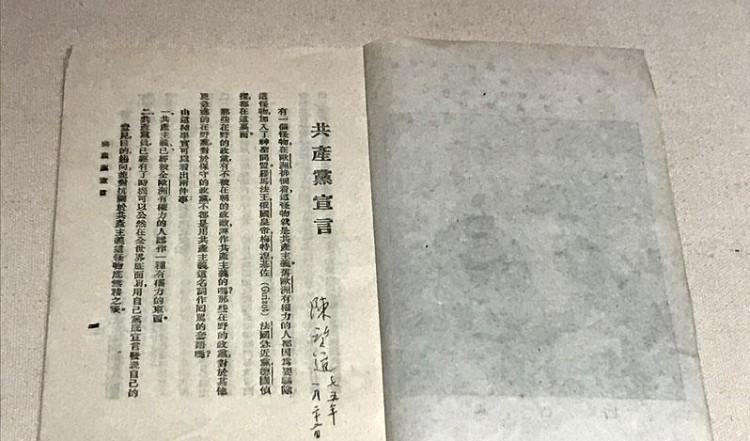 共產黨宣言
有一個怪物，在歐洲徘徊着，這怪物就是共產主義。舊歐洲有權力的人都因爲要驅除
這怪物，加入了神聖同盟。羅馬法王，俄國皇帝，梅特涅，基佐(Guizot)，法國急近黨，德國偵
探，都在這裏面。
那些在野的政黨，有不被在朝的政敵，誣作共產主義的嗎？那些在野的政黨，對於其他
更急進的在野黨，對於保守的政黨，不都是用共產主義這名詞作回罵的套語嗎？
由這種事實可以看出兩件事：
一、共產主義，已經被全歐洲有權力的人認作一種有權力的東西。
二、共產黨員，已經有了時機可以公然在全世界底面前，用自己黨底宣言發表自己的
意見，目的，趨向，並對抗關於共產主義這怪物底無稽之談。
共產黨宣言
陳望道 七五年
一月